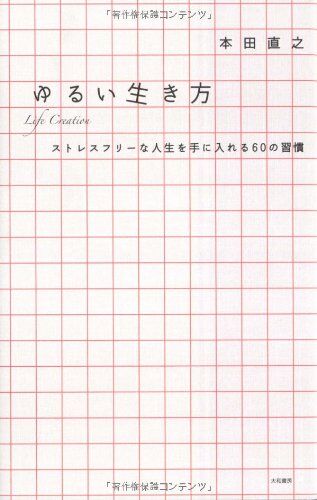 「著作権保護コンテンツ」
本田直之
ゆるい生き方
Life Creation
ストレスフリーな人生を手に入れる60の習慣
大和書房
「著作権保護コンテンツ」